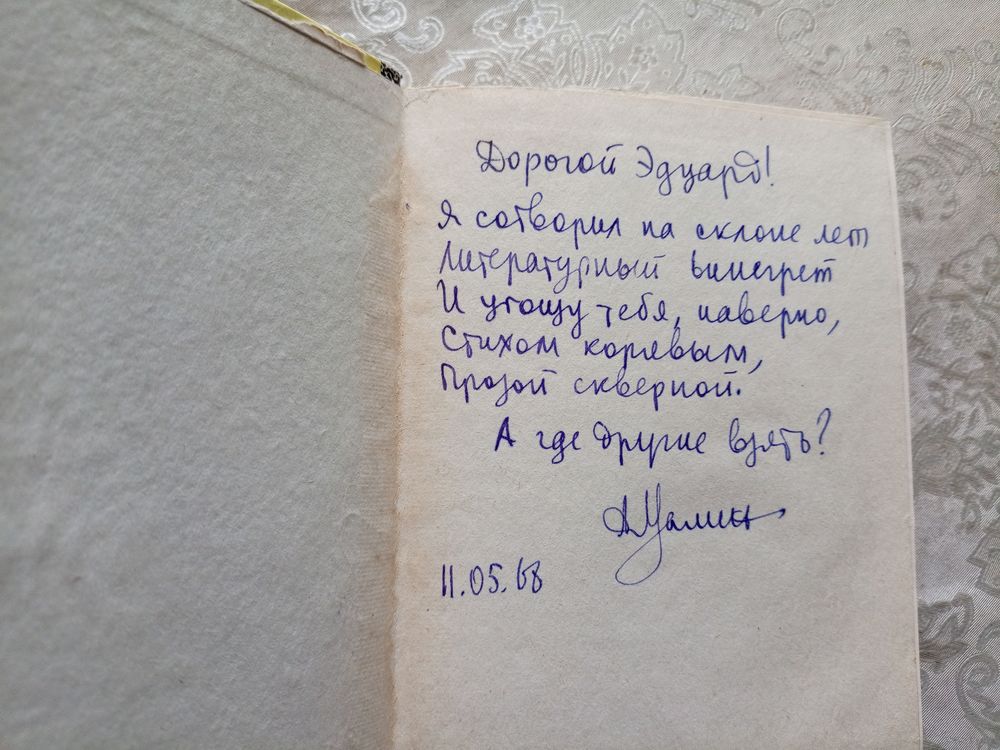 Дорогой Эдуард!
Я сотворил на склоне лет
Литературный винегрет
И угощу тебя, наверно,
Стихом корявым,
Прозой скверной.
А где другие взять?
11.05.68